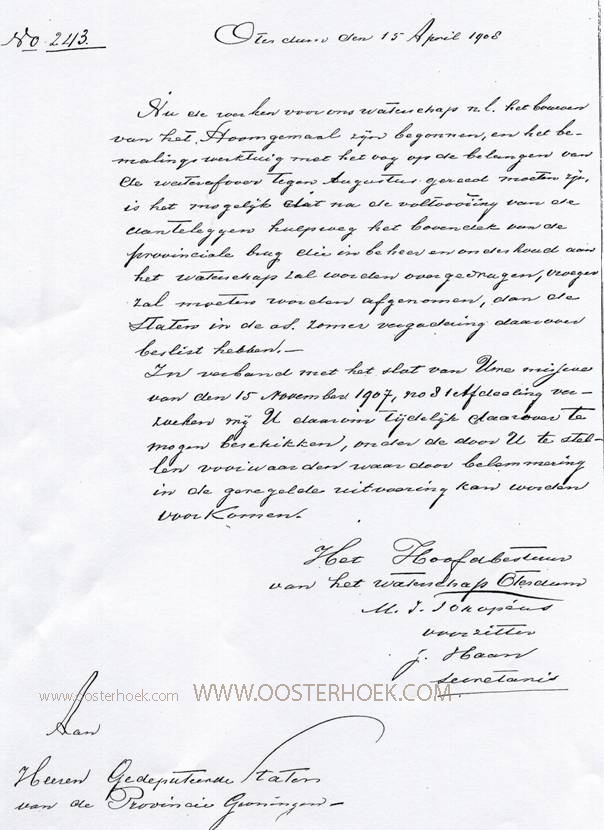 No 243.
Oterdum den 15 April 1908
Nu de werken voor ons waterschap n.l. het bouwen
van het Stoomgemaal zijn begonnen, en het be-
malings werktuig met het oog op de belangen van
de waterafvoer tegen Augustus gereed moeten zijn,
is het mogelijk dat na de voltooiing van de
aanteleggen hulpweg het bovendek van de
provinciale brug die in beheer en onderhoud aan
het waterschap zal worden overgedragen, vroeger
zal moeten worden afgenomen, dan de
Staten in de as. zomer vergadering daarover
beslist hebben.—
In verband met het slot van Uwe missive
van den 15 November 1907, no 81 Afdeeling ver-
zoeken wij U daarvin tijdelijk daarover te
mogen beschikken, onder de door U te stel-
len voorwaarden waardoor belemmering
in de geregelde uitvoering kan worden
voorkomen.
Het Hoofdbestuur
van het waterschap Oterdum
M. J.
voorzitter
J. Haan
secretaris
www.oosterhoek.com WWW.OOSTERHOEK.COM
Aan
Heeren Gedeputeerde Staten
van de Provincie Groningen—